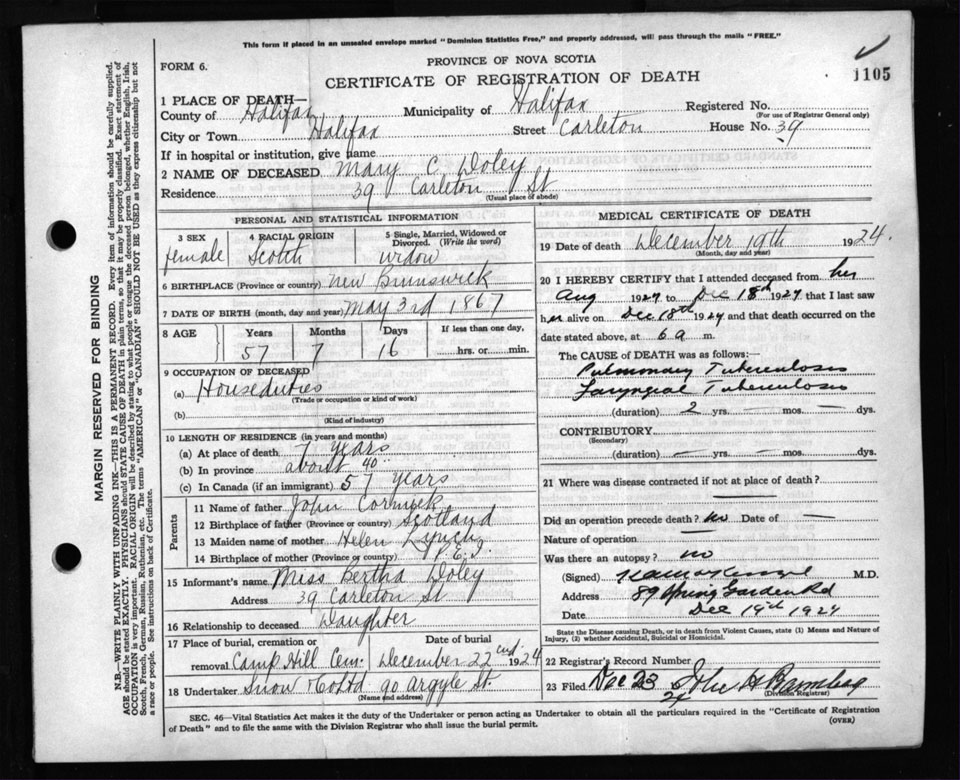 This form if placed in an unsealed envelope marked "Dominion Statistics Free," and properly addressed, will pass through the mails "FREE."
FORM 6.
PROVINCE OF NOVA SCOTIA
CERTIFICATE OF REGISTRATION OF DEATH
1105
1 PLACE OF DEATH—
County of Halifax Municipality of Halifax Registered No.
(For use of Registrar General only)
City or Town Halifax Street Carleton House No. 39
If in hospital or institution, give name
2 NAME OF DECEASED Mary C. Doley
Residence 39 Carleton St
(Usual place of abode)
MARGIN RESERVED FOR BINDING
N.B.—WRITE PLAINLY WITH UNFADING INK—THIS IS A PERMANENT RECORD. Every item of information should be carefully supplied.
AGE should be stated EXACTLY. PHYSICIANS should STATE CAUSE OF DEATH in plain terms, so that it may be properly classified. Exact statement of
OCCUPATION is very important. RACIAL ORIGIN will be described by stating to what people or tongue the deceased person belonged, whether English, Irish,
Scotch, French, German, Russian, Ruthenian, etc. The terms "AMERICAN" or "CANADIAN" SHOULD NOT BE USED as they express citizenship but not
a race or people. See instructions on back of Certificate.
PERSONAL AND STATISTICAL INFORMATION
3 SEX
female
4 RACIAL ORIGIN
Scotch
5 Single, Married, Widowed or
Divorced. (Write the word)
widow
6 BIRTHPLACE (Province or country) New Brunswick
7 DATE OF BIRTH (month, day and year) May 3rd 1867
8 AGE
Years Months Days If less than one day,
57 7 16 hrs. or min.
9 OCCUPATION OF DECEASED
(a) Houseduties
(Trade or occupation or kind of work)
(b)
(Kind of industry)
10 LENGTH OF RESIDENCE (in years and months)
(a) At place of death 7 years
(b) In province about 40
(c) In Canada (if an immigrant) 57 years
Parents
11 Name of father John Cormick
12 Birthplace of father (Province or country) Scotland
13 Maiden name of mother Helen Lynch
14 Birthplace of mother (Province or country) P.E.I.
15 Informant's name Miss Bertha Doley
Address 39 Carleton St
16 Relationship to deceased Daughter
17 Place of burial, cremation or Date of burial
removal Camp Hill Cem. December 22nd 1924
18 Undertaker Snow & Co Ltd 90 Argyle St
(Name and address)
MEDICAL CERTIFICATE OF DEATH
19 Date of death December 19th 1924.
(Month, day and year)
20 I HEREBY CERTIFY that I attended deceased from her
Aug 1924 to Dec 18th 1924 that I last saw
her alive on Dec 18th 1924 and that death occurred on the
date stated above, at 6 a m.
The CAUSE OF DEATH was as follows:
Pulmonary Tuberculosis
Laryngeal Tuberculosis
(duration) 2 yrs. — mos. — dys.
CONTRIBUTORY —
(Secondary)
(duration) — yrs. — mos. — dys.
21 Where was disease contracted if not at place of death?
—
Did an operation precede death? no Date of —
Nature of operation —
Was there an autopsy? no
(Signed) M.D.
Address 89 Spring Garden Rd
Date Dec 19th 1924
State the Disease causing Death, or in death from Violent Causes, state (1) Means and Nature of
Injury, (2) whether Accidental, Suicidal or Homicidal.
22 Registrar's Record Number
23 Filed Dec 23 24 John H
(Division Registrar)
SEC. 46—Vital Statistics Act makes it the duty of the Undertaker or person acting as Undertaker to obtain all the particulars required in the "Certificate of Registration
of Death" and to file the same with the Division Registrar who shall issue the burial permit.
(OVER)